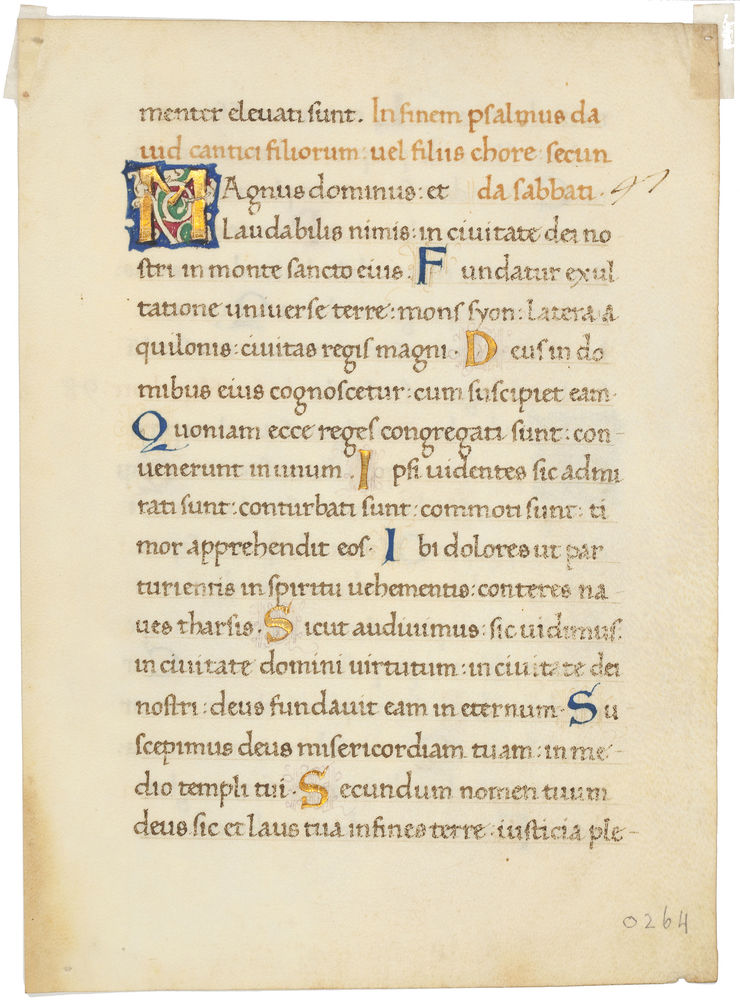 menter eleuati sunt. In finem psalmus da
uid cantici filiorum: uel filiis chore secun
MAgnus dominus: et da sabbati. 47
Laudabilis nimis: in ciuitate dei no
stri in monte sancto eius. Fundatur exul
tatione uniuerse terre: mons syon: latera a
quilonis: ciuitas regis magni. Deus in do
mibus eius cognoscetur: cum suscipiet eam.
Quoniam ecce reges congregati sunt: con-
uenerunt in unum. Ipsi uidentes sic admi
rati sunt: conturbati sunt: commoti sunt: ti
mor apprehendit eos. Ibi dolores ut par
turientis in spiritu uehementis: conteres na
ues tharsis. Sicut audiuimus: sic uidimus:
in ciuitate domini uirtutum: in ciuitate dei
nostri: deus fundauit eam in eternum. Su
scepimus deus misericordiam tuam: in me-
dio templi tui. Secundum nomen tuum
deus sic et laus tua in fines terre: iusticia ple-
0264